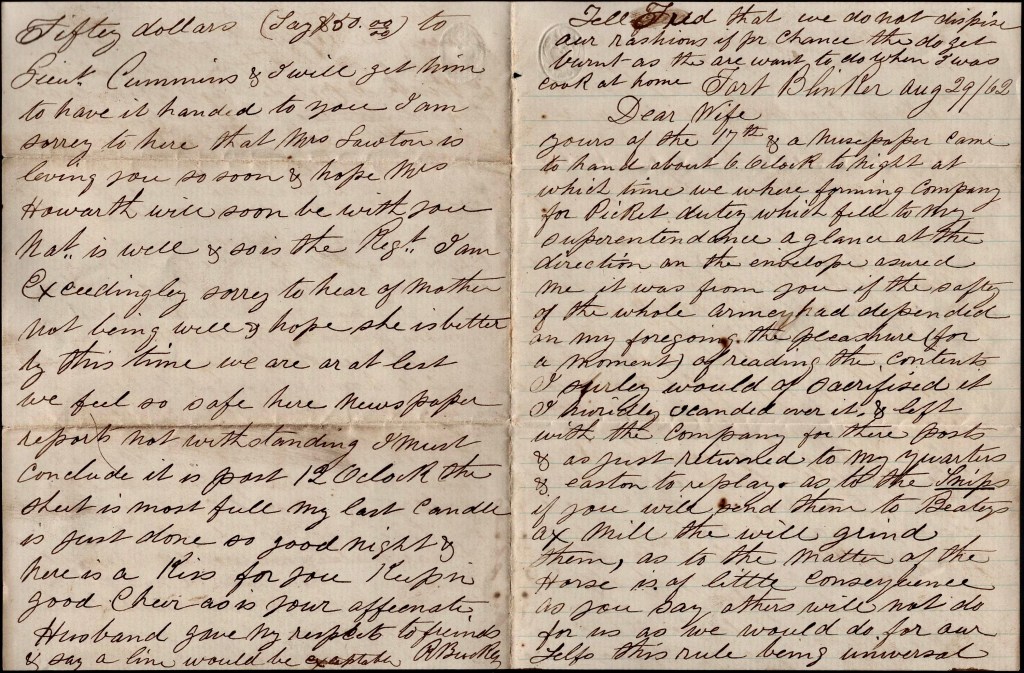 Fifty dollars (Say $50.00/00) to
Lieut. Cummins & I will get him
to have it handed to you I am
sorrey to here that Mrs Lawton is
leving you so soon & hope Mrs
Howarth will soon be with you
Nat. is well & so is the Regt. I am
Exceedingley sorrey to hear of Mother
not being well & hope she is better
by this time we are ar at lest
we feel so safe here Newspaper
reports not withstanding I Must
Conclude it is past 12 Oclock the
sheet is most full my last Candle
is just done so good night &
here is a Kiss for you Keep in
good Cheer as is your affeenate
Husband gave My respects to friends
& say a line would be exaptable R Buckley
Tell Fred that we do not dispise
our rashions if pr Chance the do get
burnt as the are want to do when I was
cook at home Fort Blinker Aug 29/62
Dear Wife
yours of the 17th & a nusepaper came
to hand about 6. Oclock to night at
which time we where forming Company
for Picket dutey which fell to my
superentendance a glance at the
direction on the envelope asured
me it was from you if the saftey
of the whole armey had depended
on my foregoing the pleashure (for
a moment) of reading the contents
I surley would of sacrifised it
I hiridley scanded over it, & left
with the Company for there posts
& as just returned to my quarters
& easton to replay. as to the Snips
if you will send them to Beateys
ax Mill the will grind
them, as to the Matter of the
Horse is of little Consequence
as you say others will not do
for us as we would do for our
selfs this rule being universal